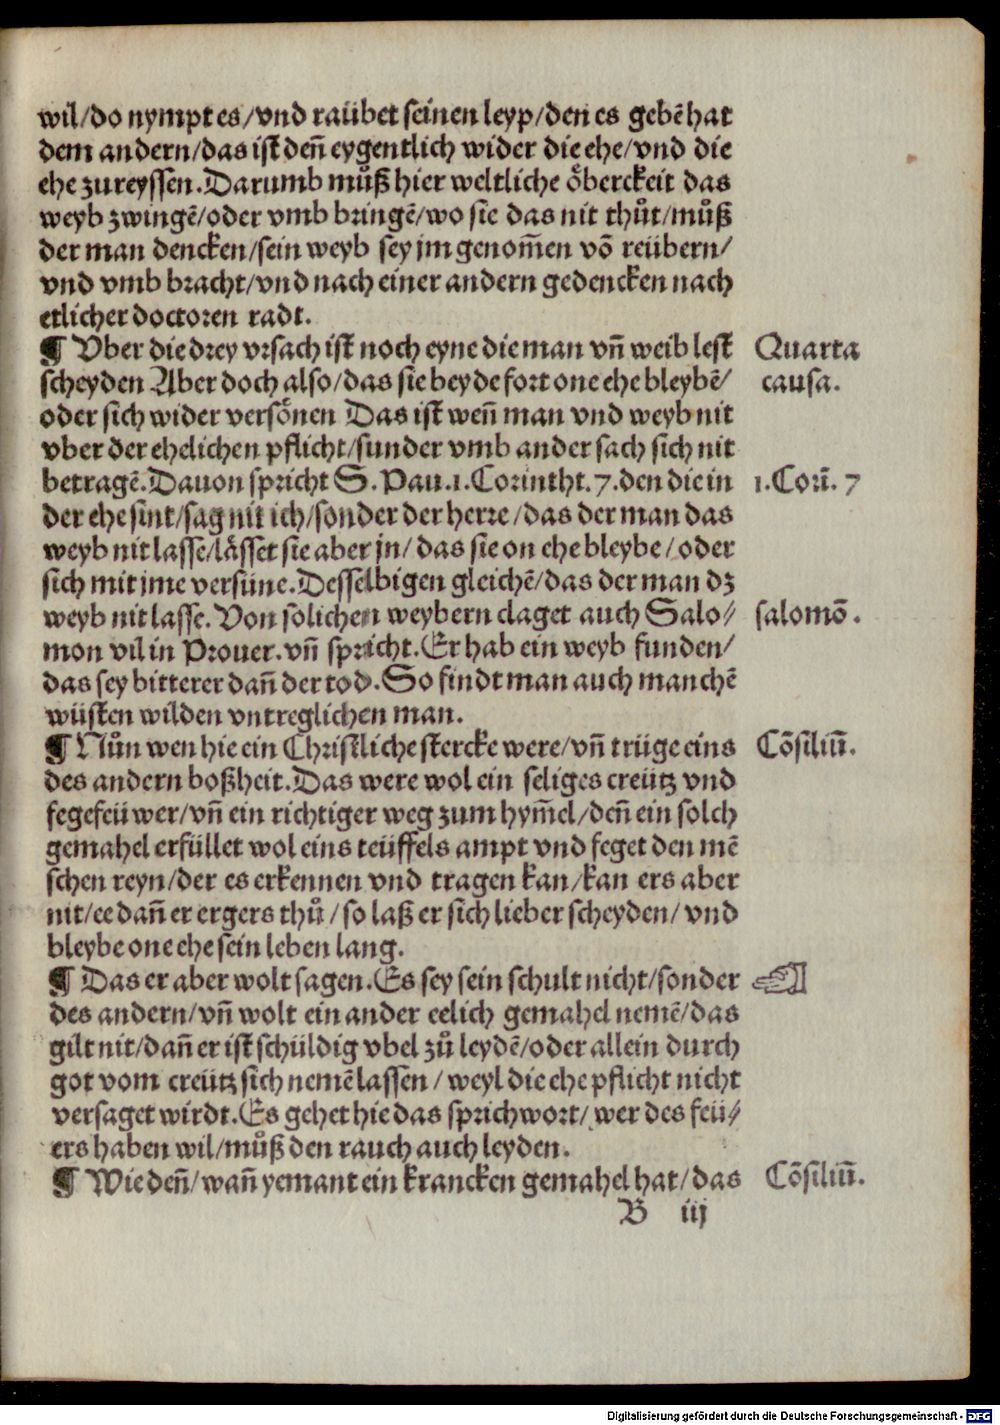 wil/do nympt es/vnd raübet seinen leyp/den es gebē hat
dem andern/das ist deñ eygentlich wider die ehe/vnd die
ehe zureyssen.Darumb můß hier weltliche öberckeit das
weyb zwingē/oder vmb bringē/wo sie das nit thůt/můß
der man dencken/sein weyb sey jm genom̄en vō reübern/
vnd vmb bracht/vnd nach einer andern gedencken nach
etlicher doctoren radt.
¶ Vber die drey vrsach ist noch eyne die man vñ weib lest
Quarta
scheyden Aber doch also/das sie beyde fort one ehe bleybē/
causa.
oder sich wider versönen Das ist weñ man vnd weyb nit
vber der ehelichen pflicht/sunder vmb ander sach sich nit
betragē.Dauon spricht S.Pau.1.Corintht.7.den die in
1.Corñ.7
der ehe sint/sag nit ich/sonder der herre/das der man das
weyb nit lasse/lässet sie aber jn/das sie on ehe bleybe/oder
sich mit jme versüne.Desselbigen gleichē/das der man dz
weyb nit lasse.Von solichen weybern claget auch Salo⸗
salomō.
mon vil in Prouer.vñ spricht.Er hab ein weyb funden/
das sey bitterer dañ der tod.So findt man auch manchē
wüsten wilden vntreglichen man.
¶ Nůn wen hie ein Christliche stercke were/vñ trüge eins
Cōsiliū.
des andern boßheit.Das were wol ein seliges creütz vnd
fegefeüwer/vñ ein richtiger weg zum hym̄el/deñ ein solch
gemahel erfüllet wol eins teüffels ampt vnd feget den mē
schen reyn/der es erkennen vnd tragen kan/kan ers aber
nit/ee dañ er ergers thů/so laß er sich lieber scheyden/vnd
bleybe one ehe sein leben lang.
¶ Das er aber wolt sagen.Es sey sein schult nicht/sonder
des andern/vñ wolt ein ander eelich gemahel nemē/das
gilt nit/dañ er ist schüldig vbel zů leydē/oder allein durch
got vom creütz sich nemē lassen/weyl die ehe pflicht nicht
versaget wirdt.Es gehet hie das sprichwort/wer des feü⸗
ers haben wil/můß den rauch auch leyden.
¶ Wie deñ/wañ yemant ein krancken gemahel hat/das
Cōsiliū.
B iij
Digitalisierung gefördert durch die Deutsche Forschungsgemeinschaft - DFG